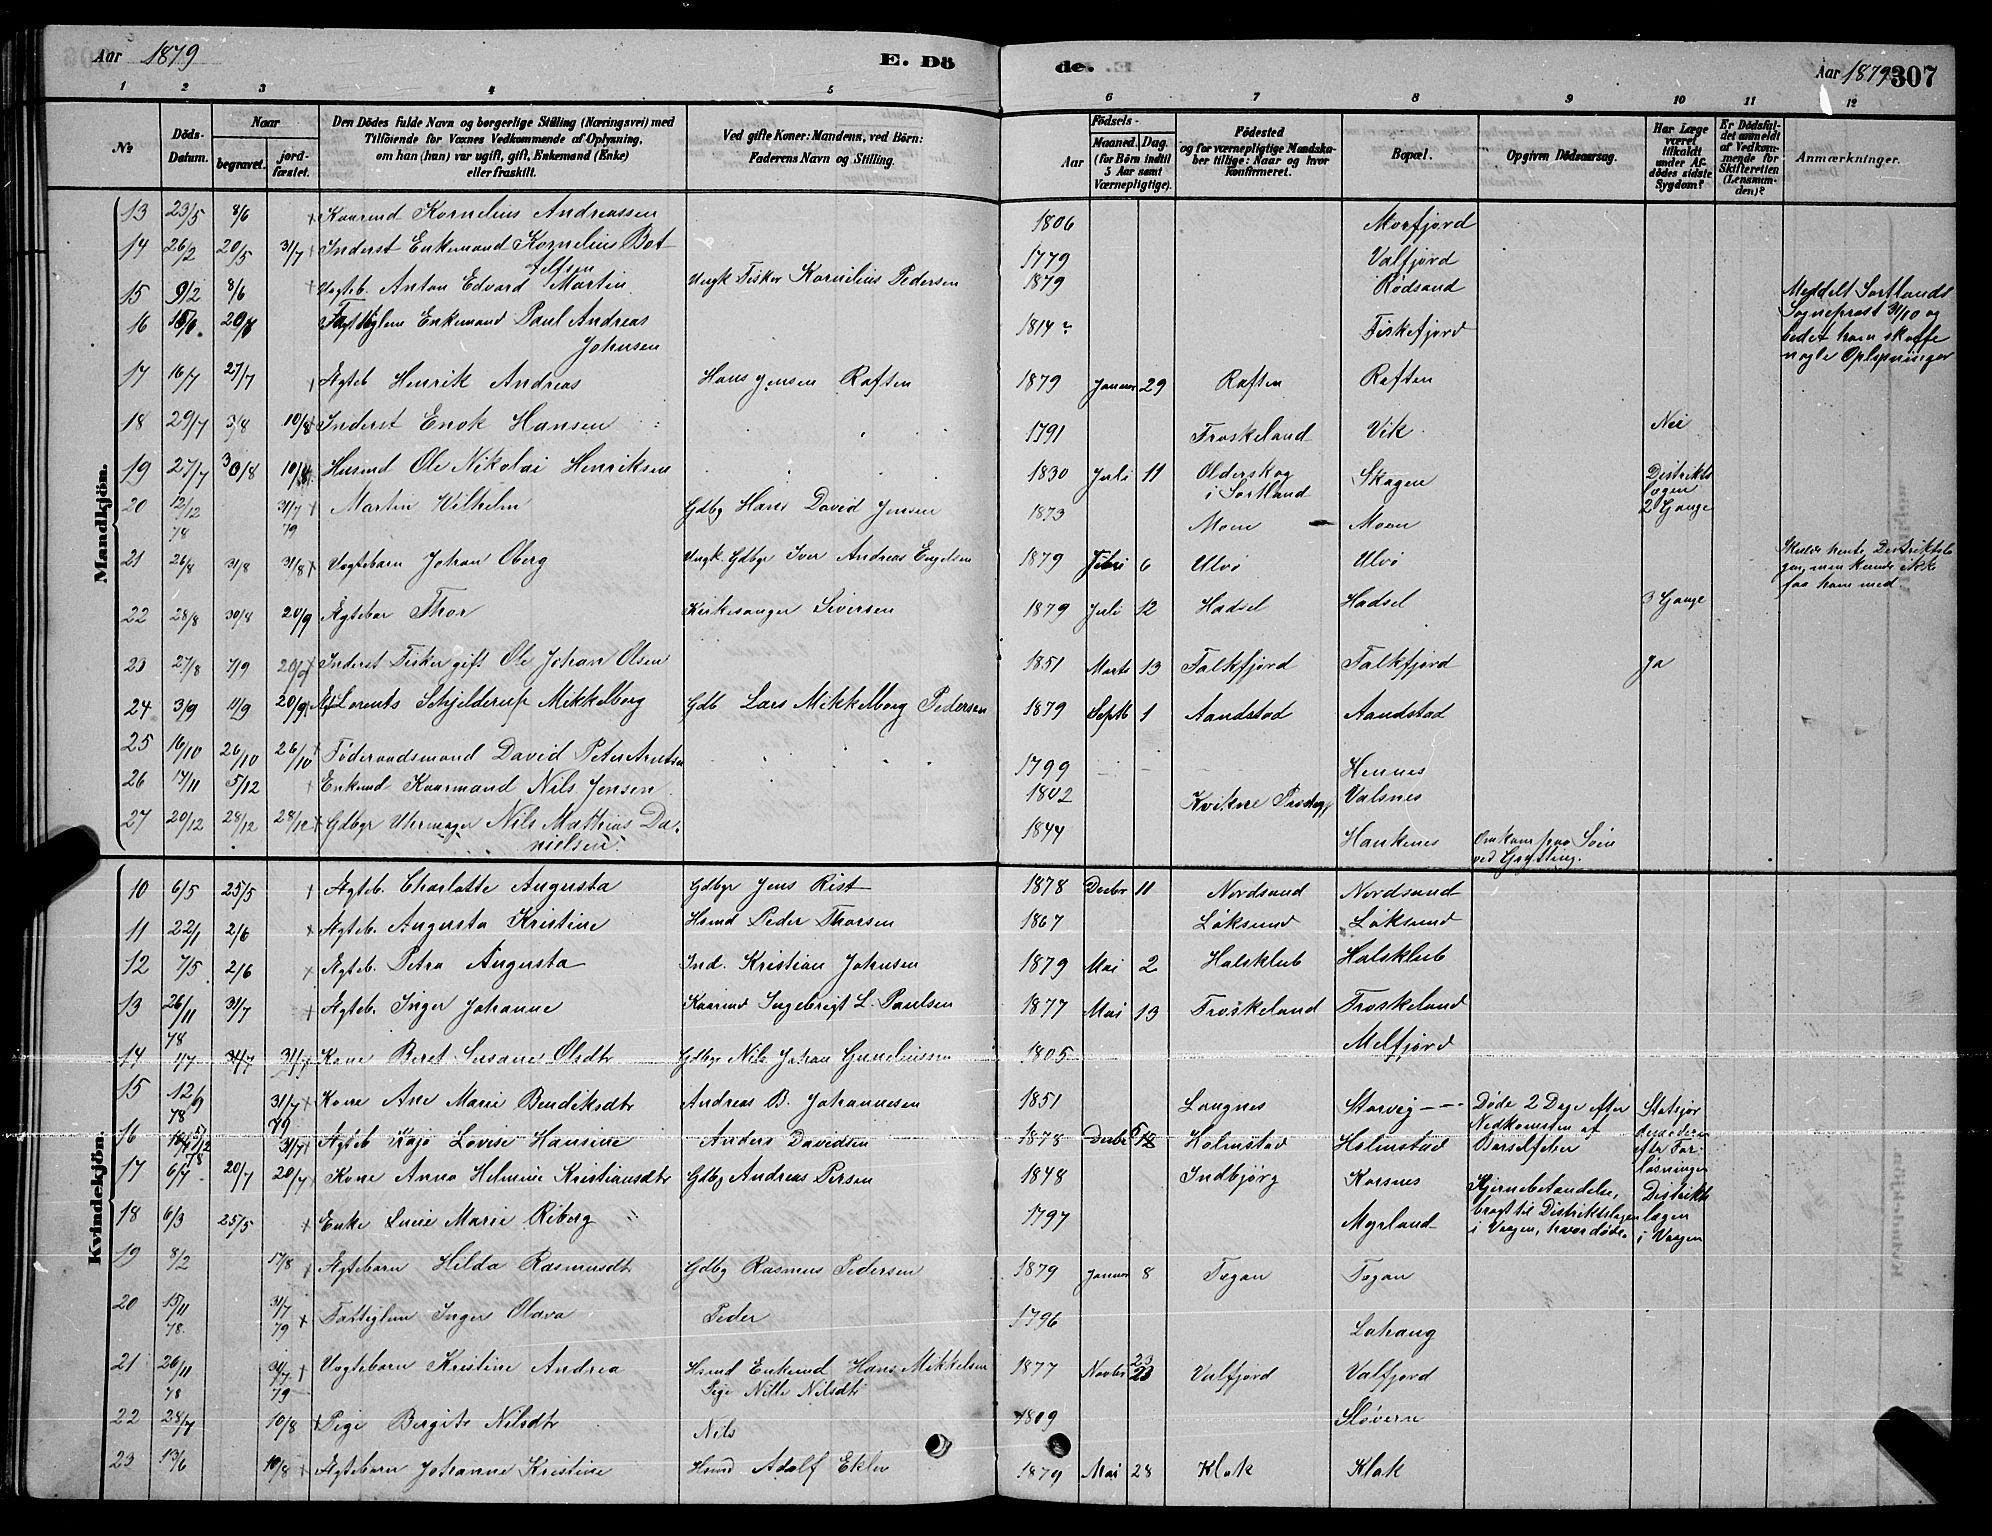 Aar 1879 E. Dö
de. Aar 1879 307
1 2 3 4 5 6 7 8 9 10 11 12
No.
Döds-Datum.
Naar
begravet.
jord-fæstet.
Den Dödes fulde Navn og borgerlige Stilling (Næringsvei) med
Tilföiende for Voxnes Vedkommende af Oplysning,
om han (hun) var ugift, gift, Enkemand (Enke)
eller fraskilt.
Ved gifte Koner: Mandens, ved Börn:
Faderens Navn og Stilling.
Födsels-
Aar
Maaned. Dag.
(for Börn indtil
5 Aar samt
Værnepligtige).
Födested
og for værnepligtige Mandska-
ber tillige: Naar og hvor
konfirmeret.
Bopæl.
Opgiven Dödsaarsag.
Har Læge
været
tilkaldt
under Af-
dödes sidste
Sygdom?
Er Dödsfal-
det anmeldt
af Vedkom-
mende for
Skifteretten
(Lensman-
den)?
Anmærkninger.
Mandkjön.
13 23/5 8/6 + Kaarmd Kornelius Andreassen 1806 Morfjord
14 26/2 20/5 31/7 + Inderst Enkemand Kornelius Bot 1779 Valfjord
15 9/2 8/6 + Uægteb. Anton Edvard Martin Ungk Fisker Kornilius Pedersen 1879 Rödsand
Meddelt Sortlands
Sogneprest 31/10 og
bedet ham skaffe
nogle Oplysninger
16 Fattiglem Enkemand Paul Andreas 1814 Fiskefjord
Johnsen
17 16/7 27/7 + Ægteb Henrik Andreas Hans Jensen Raften 1879 Januar 29 Raften Raften
18 29/7 3/8 10/8 + Inderst Enok Hansen 1791 Froskeland Vik Nei
19 27/7 10/8 Husmd Ole Nikolai Henriksen 1830 Juli 11 Olderskog Skagen Distrikts
i Sortland
2 Gange
20 12/12 78 31/7 79 + Martin Wilhelm Gdbg Hans David Jensen 1873 Moen Moen
21 26/8 31/8 31/8 + Uægtebarn Johan Oberg Ungk. Gdbgr Iver Andreas Engelsen 1879 6 Ulvö Ulvö
faa ham med.
22 28/8 30/8 20/9 Ægtebar Thor Kirkesanger Siversen 1879 Juli 12 Hadsel Hadsel 3 Gange
23 27/8 7/9 Inderst Fisker gift Ole Johan Olsen 1851 Marts 13 Falkfjord Falkfjord Ja
24 3/9 11/9 20/9 Lorents Schjelderup Mikkelborg Gdb Lars Mikkelborg Pedersen 1879 Septb 1 Aandstad Aandstad
25 16/10 26/10 26/10 Föderaadsmand David Peter 1799 Hennes
26 17/11 5/12 + Enkemd Kaarmand Nils Jensen 1802 Valsnes
27 20/12 28/12 28/12 + Gdbgr Uhrmager Nils Mathias Da- 1844 Haukenes Omkom paa Söen
nielsen. ved
Kvindekjön.
10 6/5 25/5 + Ægteb. Charlotte Augusta Gdbgr Jens Rist 1878 Decbr 11 Nordsand Nordsand
11 22/1 2/6 + Ægteb. Augusta Kristine Hsmd Peder Thorsen 1867 Löksund Löksund
12 7/5 2/6 + Ægteb. Petra Augusta Ind. Kristian Johnsen 1879 Mai 2 Holskleb Holskleb
13 26/11 78 31/7 + Ægteb. Inger Johanne Kaarmd Ingebrigt L. Paulsen 1877 Mai 13 Froskeland Froskeland
14 1/7 31/7 Kone Beret Susane Olsdtr Gdbgr Nils Johan 1805 Melfjord
15 12/9 78 31/7 79 + Kone Ane Marie Bendiksdtr Andreas B. Johannesen 1851 Langnes Storvig Döde 2 Dage efter
Nedkomsten af
Barselfeber
efter For-
lösningen
16 31/7 Ægteb Kaja Lovise Hansine Anders Davidsen 1878 Decbr Holmstad Holmstad
17 6/7 20/7 20/7 Kone Anna Helmine Kristiansdtr Gdbg Andreas Persen 1848 Indbjörg Korsnes Hjernebetændelse,
bragt til Distriktslægen
i Vaagen, hvor döde.
Distrikts
lægen
i Vaagen
18 6/3 25/5 + Enke Lucie Marie Riberg 1797 Myrland
19 8/2 17/8 + Ægtebarn Hilda Rasmusdtr Gdbg Rasmus Pedersen 1879 Januar 8 Tøgan Tøgan
20 15/11 78. 31/7 79 + Fattiglem Inger Olava Peder 1796
21 26/11 78 31/7 79 + Uægtebarn Kristine Andrea Hsmd Enkemd Hans Mikkelsen 1877 Novbr 23 Valfjord Valfjord
Pige Nille Nilsdtr
22 28/7 10/8 + Pige Bergite Nilsdtr Nils 1809
23 13/6 10/8 + Ægtebarn Johanne Kristine Hsmd Adolf 1879 Mai 28 Klak Klak